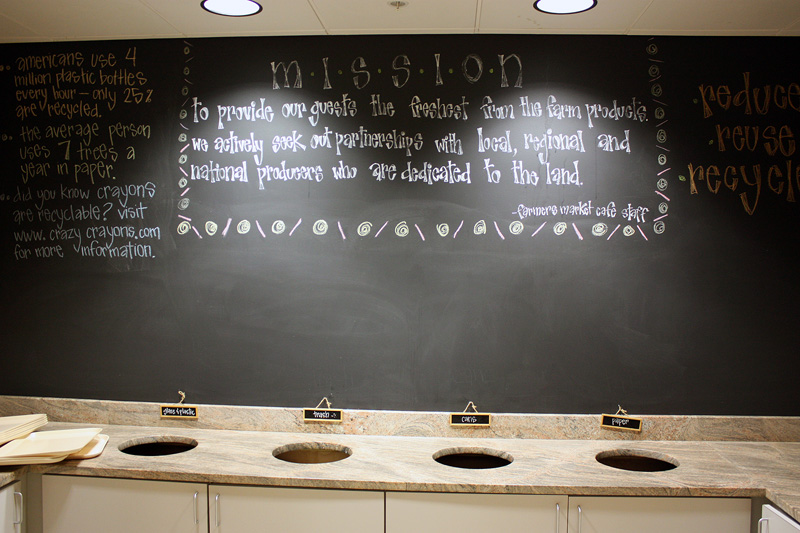 americans use 4
million plastic bottles
every hour - only 25%
are recycled.
the average person
uses 7 trees a
year in paper.
did you know crayons
are recyclable? visit
www.crazycrayons.com
for more information.
m·i·s·s·i·o·n
to provide our guests the freshest from the farm products.
we actively seek out partnerships with local, regional and
national producers who are dedicated to the land.
-farmers market cafe staff
reduce
reuse
recycle
glass & plastic
trash
cans
paper